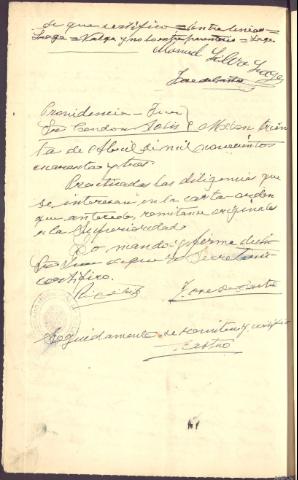 de que certifico = Entre lineas =
Lage = Valga y no lo entre parentesis = Lage
Manuel Lage
Jose de Castro
Providencia = Juez
Sr. Cordon Solis } Moan trein
ta de Abril de mil novecientos
cuarenta y tres.
Practicadas las diligencias que
se interesan en la carta-orden
que antecede, remitanse originales
a la Superioridad.
Lo mando y firma dicho
Sr. Juez de que yo Secretario
certifico.
Jose de Castro
Seguidamente se remiten y certifico
Castro